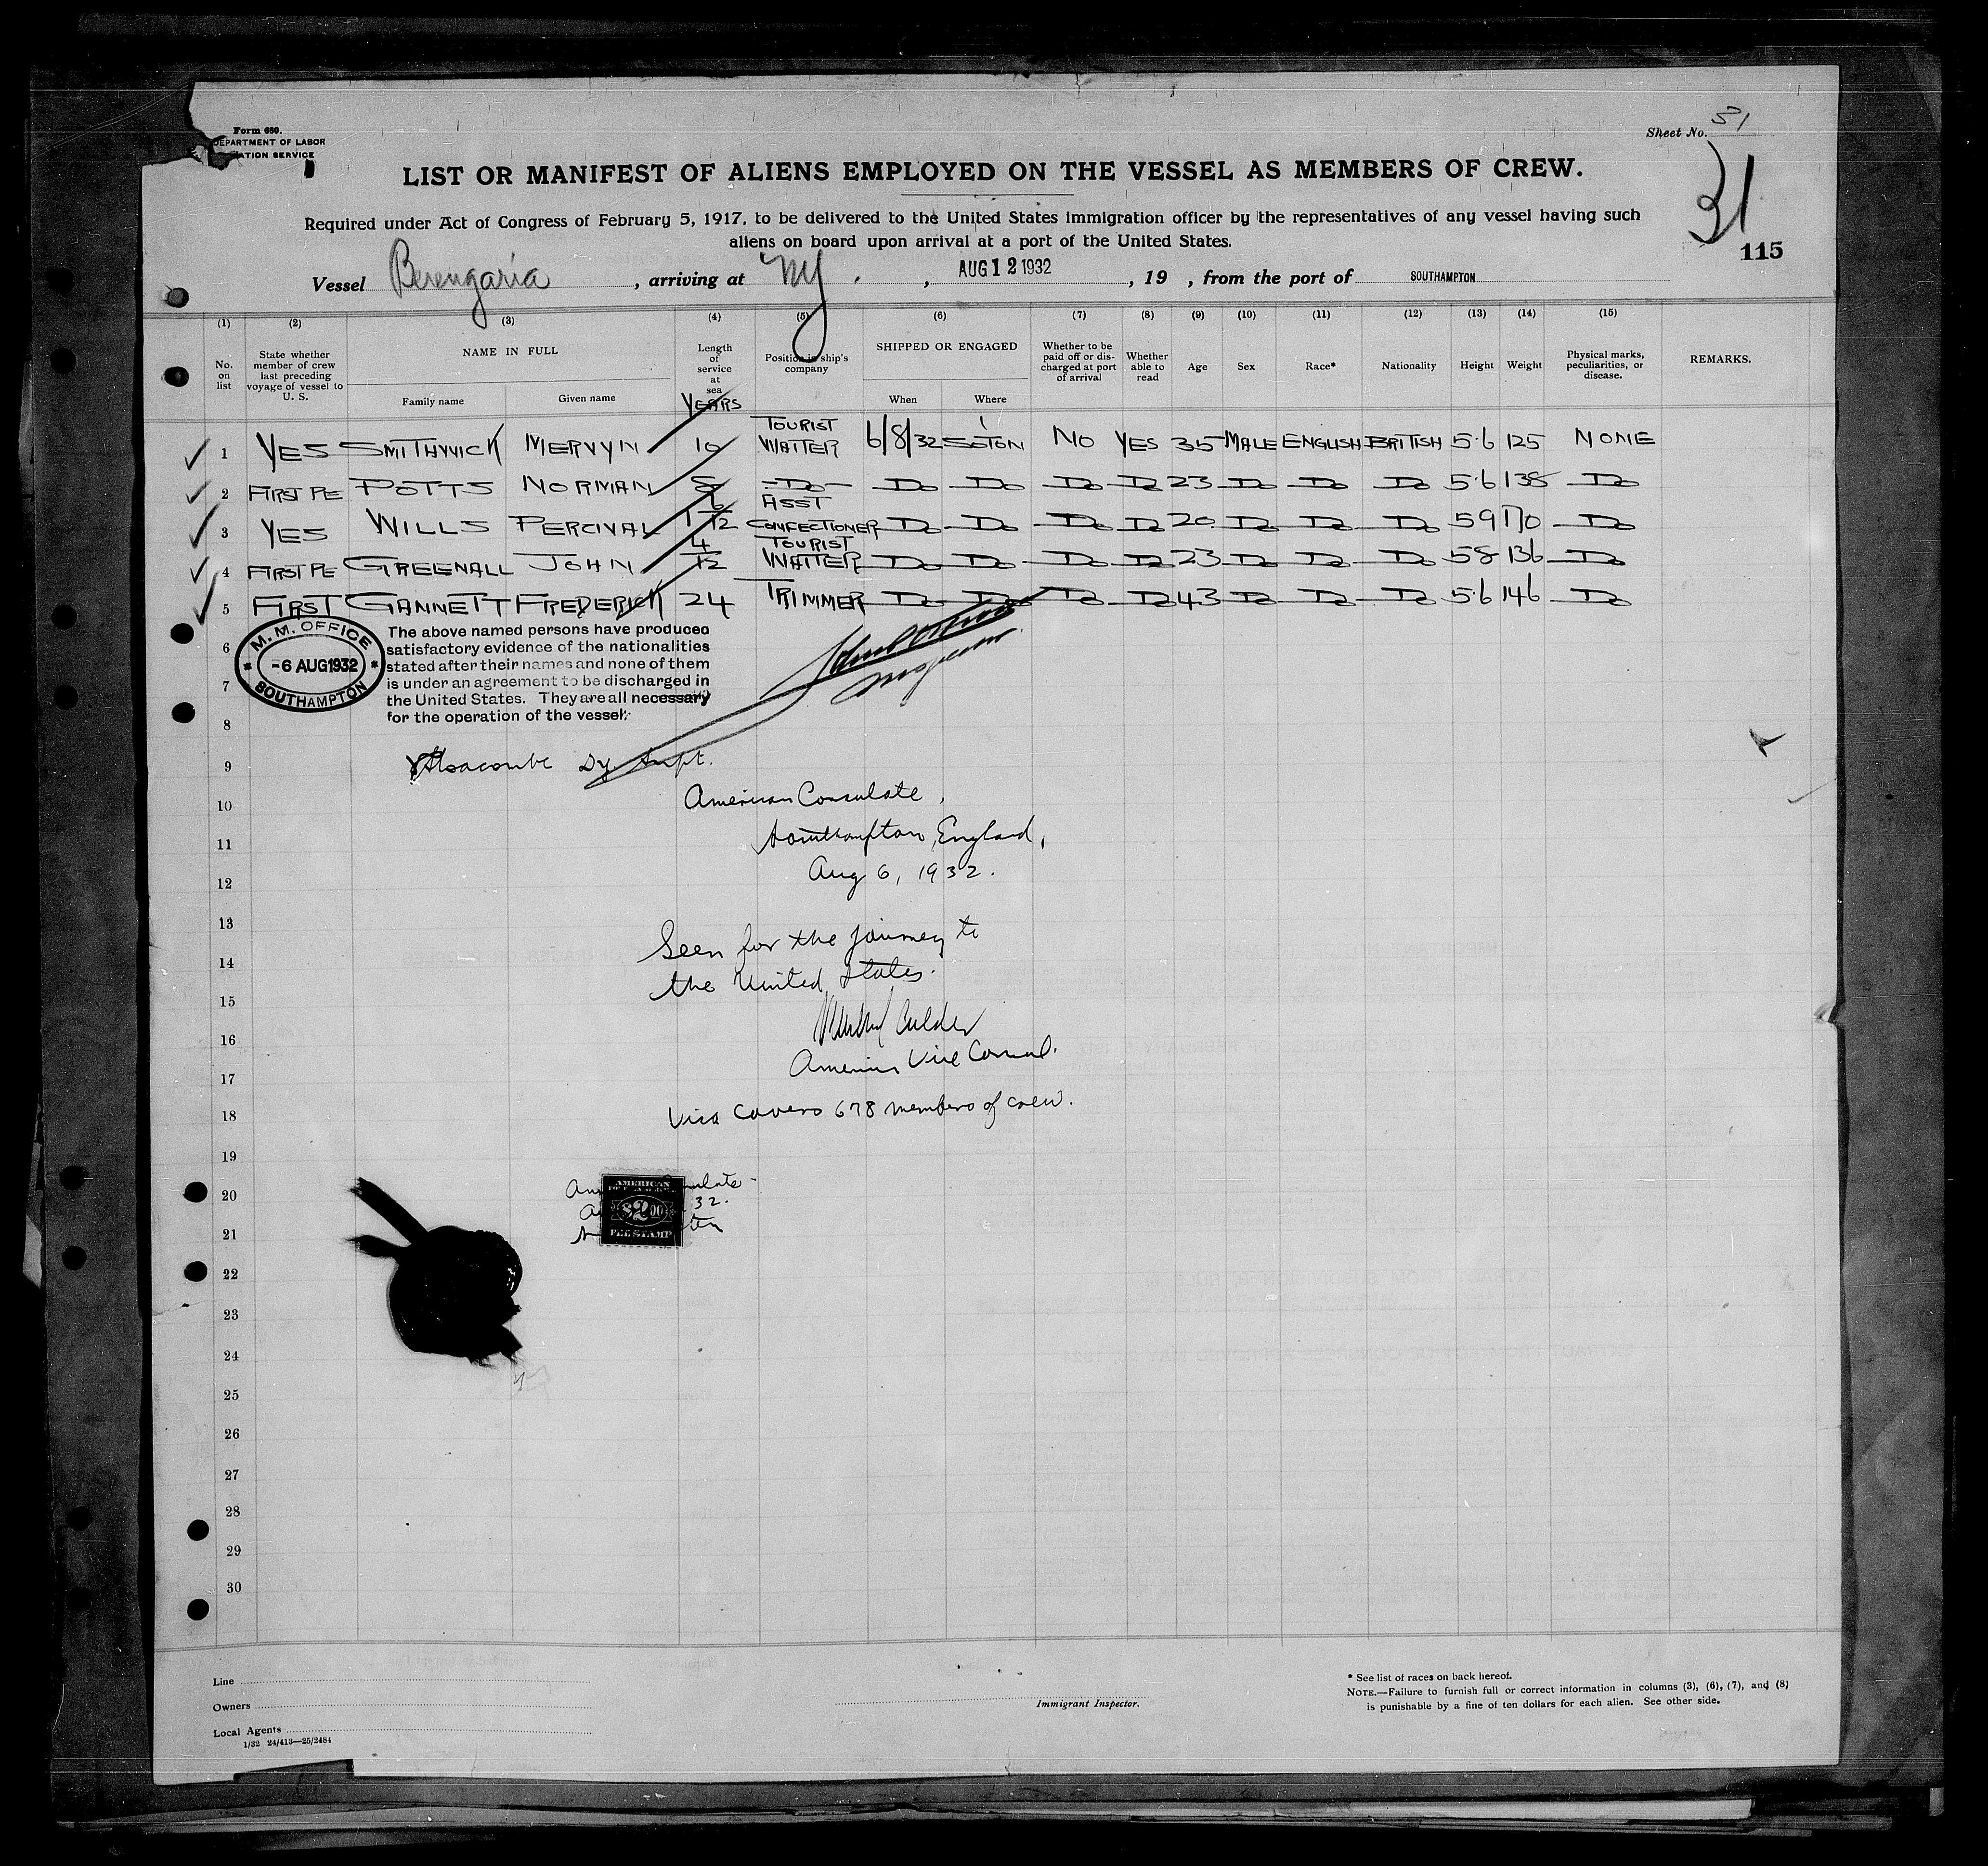 Form 680.
DEPARTMENT OF LABOR
ATION SERVICE
Sheet No. 31
31
115
LIST OR MANIFEST OF ALIENS EMPLOYED ON THE VESSEL AS MEMBERS OF CREW.
Required under Act of Congress of February 5, 1917, to be delivered to the United States immigration officer by the representatives of any vessel having such
aliens on board upon arrival at a port of the United States.
Vessel Berengaria, arriving at NY., AUG 12 1932, 19 , from the port of SOUTHAMPTON
(1) (2) (3) (4) (5) (6) (7) (8) (9) (10) (11) (12) (13) (14) (15)
No. on list
State whether member of crew last preceding voyage of vessel to U. S.
NAME IN FULL
Family name
Given name
Length of service at sea
YEARS
Position in ship's company
SHIPPED OR ENGAGED
When
Where
Whether to be paid off or discharged at port of arrival
Whether able to read
Age
Sex
Race*
Nationality
Height
Weight
Physical marks, peculiarities, or disease.
REMARKS.
1 YES SMITHWICK MERVYN 10 TOURIST WAITER 6/8/32 SOTON NO YES 35 MALE ENGLISH BRITISH 5·6 125 NONE
2 FIRST PE POTTS NORMAN 8 -Do- Do Do Do Do 23 Do Do Do 5·6 138 Do
3 YES WILLS PERCIVAL 1 6/12 ASST CONFECTIONER Do Do Do Do 20 Do Do Do 59 170 Do
4 FIRST PE GREENALL JOHN 4/12 TOURIST WAITER Do Do Do Do 23 Do Do Do 58 136 Do
5 FIRST GANNETT FREDERICK 24 TRIMMER Do Do Do Do 43 Do Do Do 5·6 146 Do
M. M. OFFICE
-6 AUG 1932
SOUTHAMPTON
The above named persons have produced
satisfactory evidence of the nationalities
stated after their names and none of them
is under an agreement to be discharged in
the United States. They are all necessary
for the operation of the vessel.
Inspector.
Dy. Supt.
American Consulate,
Southampton, England,
Aug 6, 1932.
Seen for the journey to
the United States.
Culder
American Vice Consul.
Visa covers 678 members of crew.
AMERICAN
$2.00
FEE STAMP
32.
6
7
8
9
10
11
12
13
14
15
16
17
18
19
20
21
22
23
24
25
26
27
28
29
30
Line
Owners
Local Agents
1/32 24/413—25/2484
Immigrant Inspector.
* See list of races on back hereof.
NOTE.—Failure to furnish full or correct information in columns (3), (6), (7), and (8)
is punishable by a fine of ten dollars for each alien. See other side.